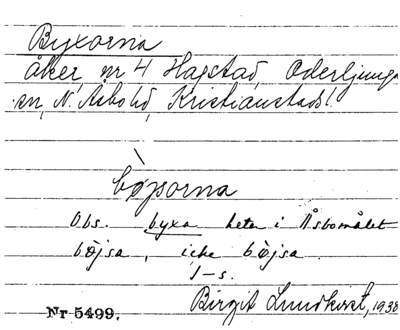 Byxorna
åker, nr 4 Hagstad, Oderljunga
sn, N. Åsbo hd, Kristianstads l.
bø̀psorna
Obs. byxa heter i Åsbomålet
bøjsa, icke bø̀jsa
1-s.
Birgit Lundkvist, 1938
Nr 5499.